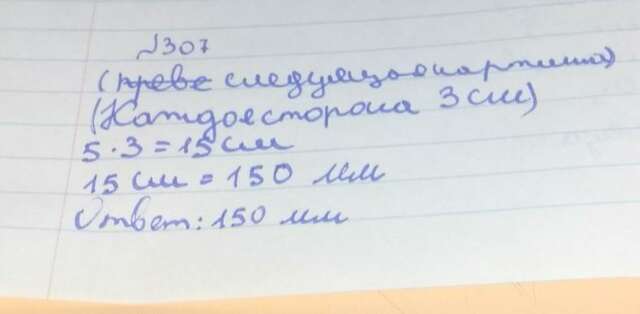 №307
(следующая картина)
(Каждое сторона 3 см)
5·3=15 см
15 см = 150 мм
Ответ: 150 мм